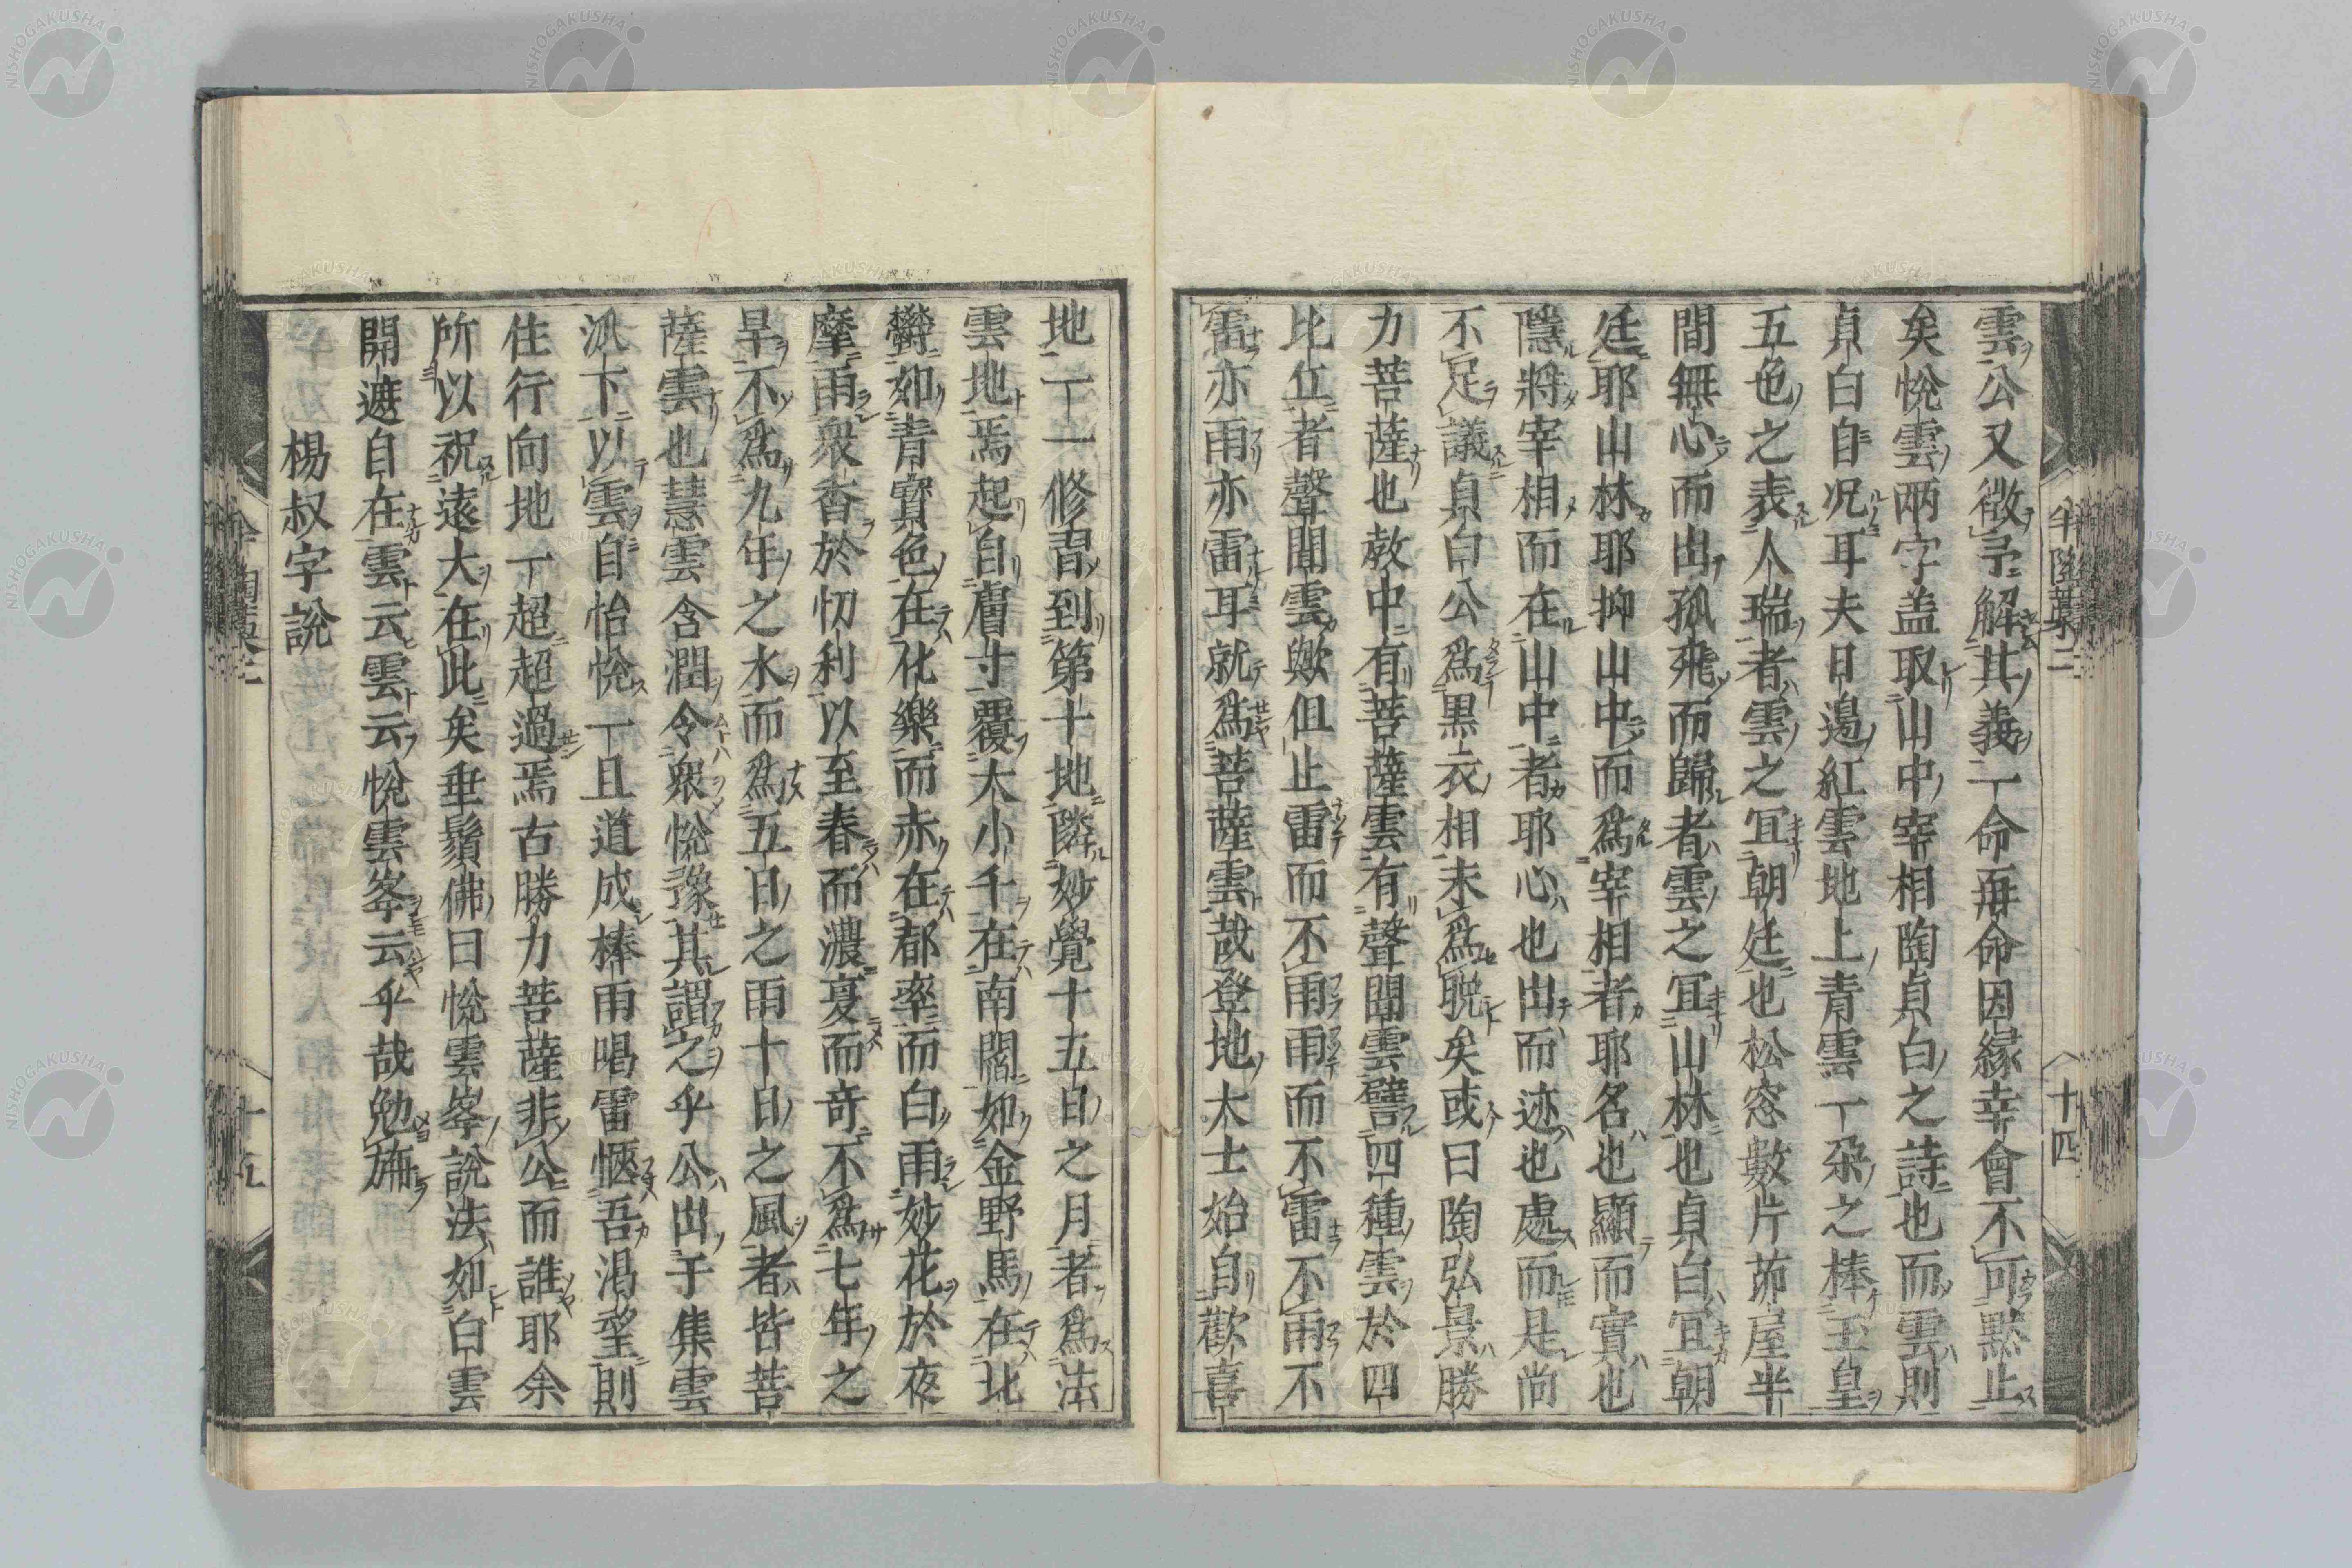 雲公又徴予解其義一命再命因緣幸會不可黙止
矣悅雲兩字盖取山中宰相陶貞白之詩也而雲則
貞白自况耳夫日邊紅雲地上青雲一朶之棒玉皇
五色之表人瑞者雲之冝朝廷也松窓數片茆屋半
間無心而出孤飛而歸者雲之冝山林也貞白冝朝
廷耶山林耶抑山中而爲宰相者耶名也顯而實也
隱將宰相而在山中者耶心也出而迹也處而是尚
不足議貞白公爲黒衣相未爲晩矣或曰陶弘景勝
力菩薩也敎中有菩薩雲有聲聞雲譬四種雲於四
比丘者聲聞雲歟但止雷而不雨雨而不雷不雨不
雷亦雨亦雷耳就爲菩薩雲哉登地大士始自歡喜
地一一修習到第十地隣妙覺十五日之月者爲法
雲地焉起自膚寸覆大小千在南閻如金野馬在北
欎如青寳色在化樂而赤在都率而白雨妙花於夜
摩雨衆香於忉利以至春而濃夏而奇不爲七年之
旱不爲九年之水而爲五日之雨十日之風者皆菩
薩雲也慧雲含潤令衆悅豫其謂之乎公出于集雲
派下以雲自怡悅一旦道成棒雨喝雷愜吾渇望則
住行向地一超超過焉古勝力菩薩非公而誰耶余
所以祝遠大在此矣垂鬚佛曰悅雲峯說法如白雲
開遮自在雲云雲云悅雲峯云乎哉勉旃
楊叔字說
半陶藁二
十四
十五
NISHOGAKUSHA